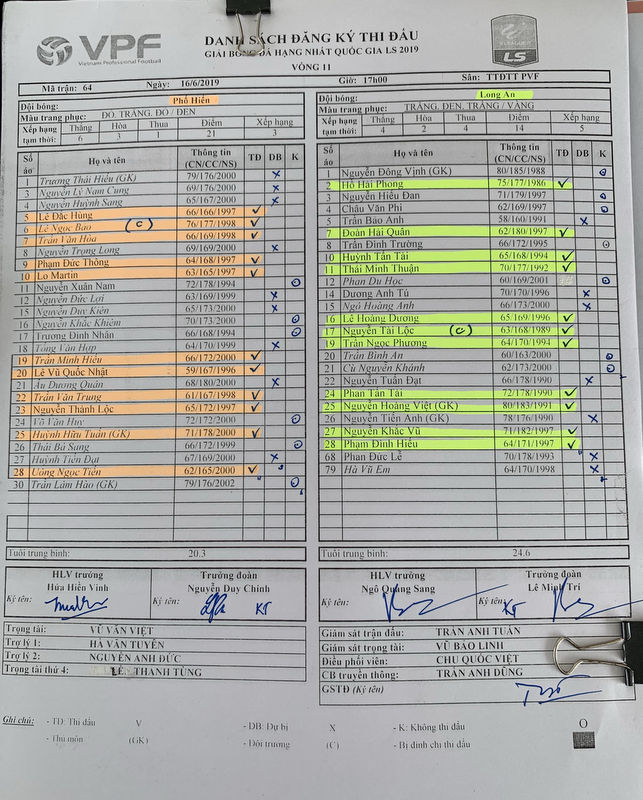 VPF
Vietnam Professional Football
DANH SÁCH ĐĂNG KÝ THI ĐẤU
GIẢI BÓNG ĐÁ HẠNG NHẤT QUỐC GIA LS 2019
VÒNG 11
LS
Mã trận: 64 Ngày: 16/6/2019 Giờ: 17h00 Sân: TTĐTT PVF
Đội bóng: Phố Hiến
Màu trang phục: ĐỎ, TRẮNG, ĐỎ / ĐEN
Xếp hạng tạm thời: Thắng Hòa Thua Điểm Xếp hạng
6 3 1 21 3
Số áo Họ và tên Thông tin (CN/CC/NS) TĐ DB K
1 Trương Thái Hiếu (GK) 79/176/2000 X
3 Nguyễn Lý Nam Cung 69/176/2000 X
4 Nguyễn Huỳnh Sang 65/167/2000 X
5 Lê Đắc Hùng 66/166/1997 V
6 Lê Ngọc Bảo (C) 76/177/1998 V
7 Trần Văn Hòa 66/169/1998 V
8 Nguyễn Trọng Long 69/169/2000 X
9 Phạm Đức Thông 64/168/1997 V
10 Lo Martin 63/165/1997 V
11 Nguyễn Xuân Nam 72/178/1994 O
12 Nguyễn Đức Lợi 63/169/1999 X
15 Nguyễn Duy Kiên 65/170/2000 X
16 Nguyễn Khắc Khiêm 73/173/2000 O
17 Trương Đình Nhân 66/168/1994 O
18 Tống Văn Hợp 64/170/1999 X
19 Trần Minh Hiếu 66/172/2000 V
20 Lê Vũ Quốc Nhật 59/167/1996 V
21 Âu Dương Quân 68/180/2000 X
22 Trần Văn Trung 61/167/1998 V
23 Nguyễn Thành Lộc 65/172/1997 V
24 Võ Văn Huy 72/172/2000 O
25 Huỳnh Hữu Tuấn (GK) 71/178/2000 V
26 Thái Bá Sang 66/172/1999 O
27 Huỳnh Tiến Đạt 67/169/2000 X
28 Uông Ngọc Tiến 62/165/2000 V
30 Trần Lâm Hào (GK) 79/176/2002 O
Tuổi trung bình: 20.3
HLV trưởng Trưởng đoàn
Hứa Hiền Vinh Nguyễn Duy Chính
Ký tên: Ký tên: KT
Trọng tài: VŨ VĂN VIỆT
Trợ lý 1: HÀ VĂN TUYẾN
Trợ lý 2: NGUYỄN ANH ĐỨC
Trọng tài thứ 4: LÊ THANH TÙNG
Đội bóng: Long An
Màu trang phục: TRẮNG, ĐEN, TRẮNG / VÀNG
Xếp hạng tạm thời: Thắng Hòa Thua Điểm Xếp hạng
4 2 4 14 5
Số áo Họ và tên Thông tin (CN/CC/NS) TĐ DB K
1 Nguyễn Đông Vịnh (GK) 80/185/1988 O
2 Hồ Hải Phong 75/177/1986 V
3 Nguyễn Hiếu Đan 71/179/1997 O
4 Châu Văn Phi 62/169/1997 O
5 Trần Bảo Anh 58/160/1991 X
7 Đoàn Hải Quân 62/180/1997 V
8 Trần Đình Trường 66/172/1995 O
10 Huỳnh Tấn Tài 65/168/1994 V
11 Thái Minh Thuận 70/177/1992 V
12 Phan Du Học 60/169/2001 O
14 Dương Anh Tú 70/170/1996 X
15 Ngô Hoàng Anh 66/173/2000 X
16 Lê Hoàng Dương 65/169/1996 V
17 Nguyễn Tài Lộc (C) 63/168/1989 V
19 Trần Ngọc Phương 64/170/1994 V
20 Trần Bình An 60/163/2000 O
21 Cù Nguyễn Khánh 62/173/2000 O
22 Nguyễn Tuấn Đạt 66/178/1990 X
24 Phan Tấn Tài 72/178/1990 V
25 Nguyễn Hoàng Việt (GK) 80/183/1991 V
26 Nguyễn Tiến Anh (GK) 78/176/1990 X
27 Nguyễn Khắc Vũ 71/182/1997 V
28 Phạm Đình Hiếu 64/171/1997 V
68 Phan Đức Lễ 70/178/1993 X
79 Hà Vũ Em 64/170/1998 X
Tuổi trung bình: 24.6
HLV trưởng Trưởng đoàn
Ngô Quang Sang Lê Minh Trí
Ký tên: Ký tên: KT
Giám sát trận đấu: TRẦN ANH TUẤN
Giám sát trọng tài: VŨ BẢO LINH
Điều phối viên: CHU QUỐC VIỆT
CB truyền thông: TRẦN ANH DŨNG
GSTĐ (Ký tên)
Ghi chú: - TĐ: Thi đấu V - DB: Dự bị X - K: Không thi đấu O
- Thủ môn (GK) - Đội trưởng (C) - Bị đình chỉ thi đấu